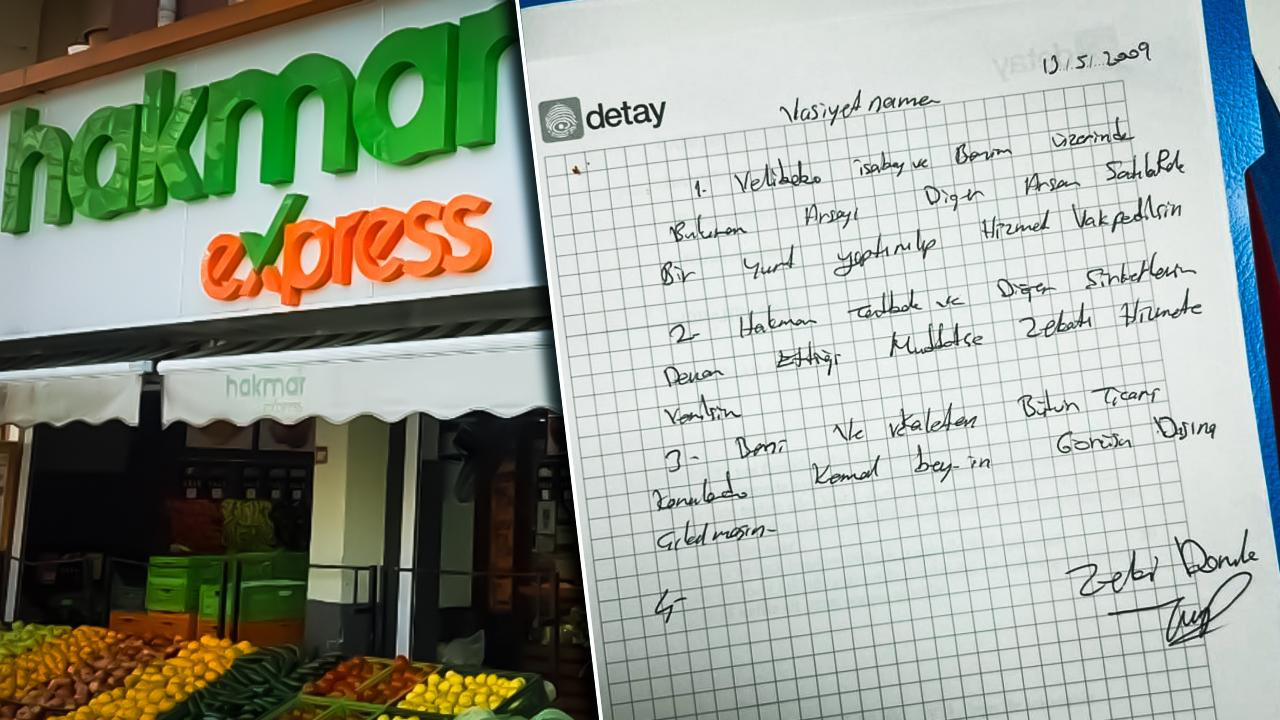 hakmar
express
hakmar
express
detay
13.5.2009
Vasiyetname
1. Velibaba isabey ve Benim üzerinde
Bulunan Arsayı Diğer Arsam
Bir Yurt yaptırılıp Hizmet Vakfedilsin
2- Hakmar ve Diğer Şirketlerin
Devam Ettiği Müddetçe Zekatı Hizmete
Verilsin
3- Beni ve vekaleten Bütün Ticari
Konularda Kemal bey-in Görüşü Dışına
Gidilmesin-
4-
Zeki